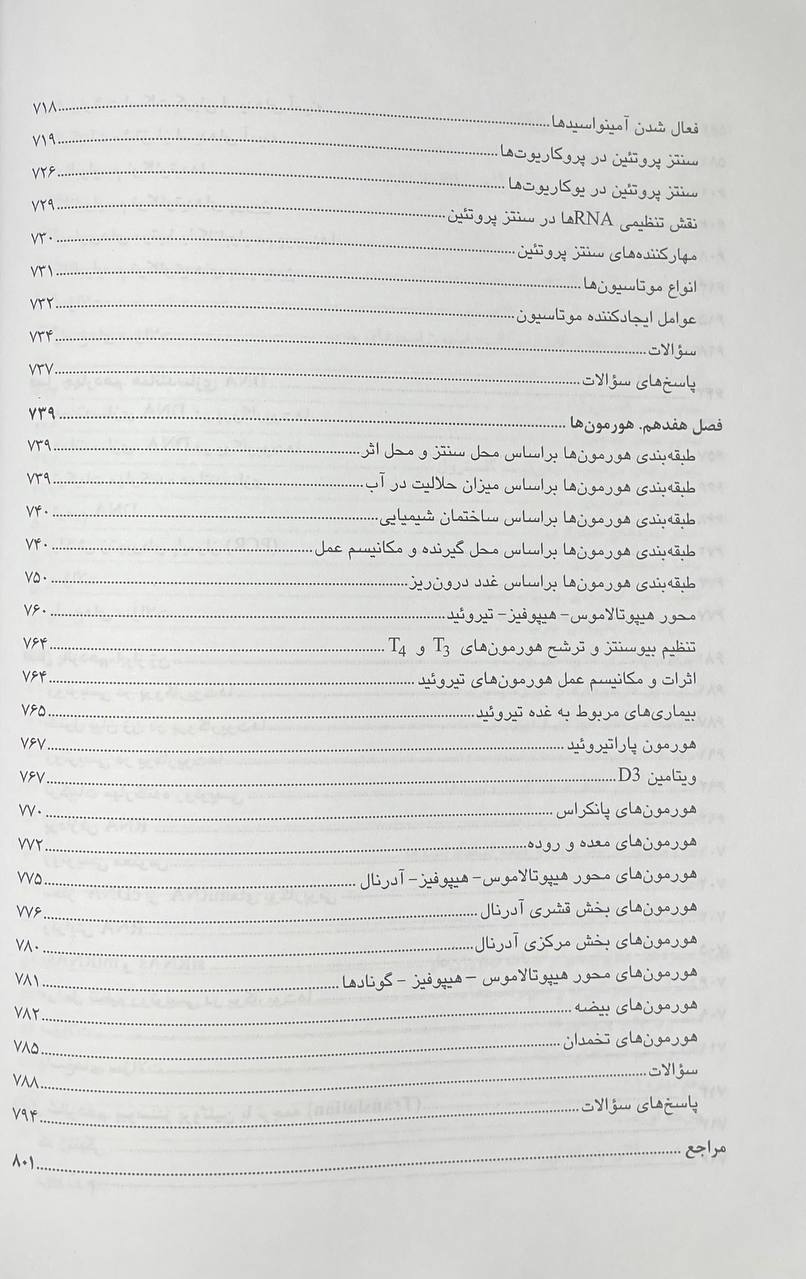 فعال شدن آمینواسیدها ۷۱۸
سنتز پروتئین در پروکاریوت‌ها ۷۱۹
سنتز پروتئین در یوکاریوت‌ها ۷۲۶
نقش تنظیمی RNAها در سنتز پروتئین ۷۲۹
مهارکننده‌های سنتز پروتئین ۷۳۰
انواع موتاسیون‌ها ۷۳۱
عوامل ایجادکننده موتاسیون ۷۳۲
سؤالات ۷۳۴
پاسخ‌های سؤالات ۷۳۷
فصل هفدهم. هورمون‌ها ۷۳۹
طبقه‌بندی هورمون‌ها براساس محل سنتز و محل اثر ۷۳۹
طبقه‌بندی هورمون‌ها براساس میزان حلالیت در آب ۷۳۹
طبقه‌بندی هورمون‌ها براساس ساختمان شیمیایی ۷۴۰
طبقه‌بندی هورمون‌ها براساس محل گیرنده و مکانیسم عمل ۷۴۰
طبقه‌بندی هورمون‌ها براساس غدد درون‌ریز ۷۵۰
محور هیپوتالاموس- هیپوفیز- تیروئید ۷۶۰
تنظیم بیوسنتز و ترشح هورمون‌های T3 و T4 ۷۶۴
اثرات و مکانیسم عمل هورمون‌های تیروئید ۷۶۴
بیماری‌های مربوط به غده تیروئید ۷۶۵
هورمون پاراتیروئید ۷۶۷
ویتامین D3 ۷۶۷
هورمون‌های پانکراس ۷۷۰
هورمون‌های معده و روده ۷۷۲
هورمون‌های محور هیپوتالاموس- هیپوفیز- آدرنال ۷۷۵
هورمون‌های بخش قشری آدرنال ۷۷۶
هورمون‌های بخش مرکزی آدرنال ۷۸۰
هورمون‌های محور هیپوتالاموس – هیپوفیز – گونادها ۷۸۱
هورمون‌های بیضه ۷۸۲
هورمون‌های تخمدان ۷۸۵
سؤالات ۷۸۸
پاسخ‌های سؤالات ۷۹۴
مراجع ۸۰۱